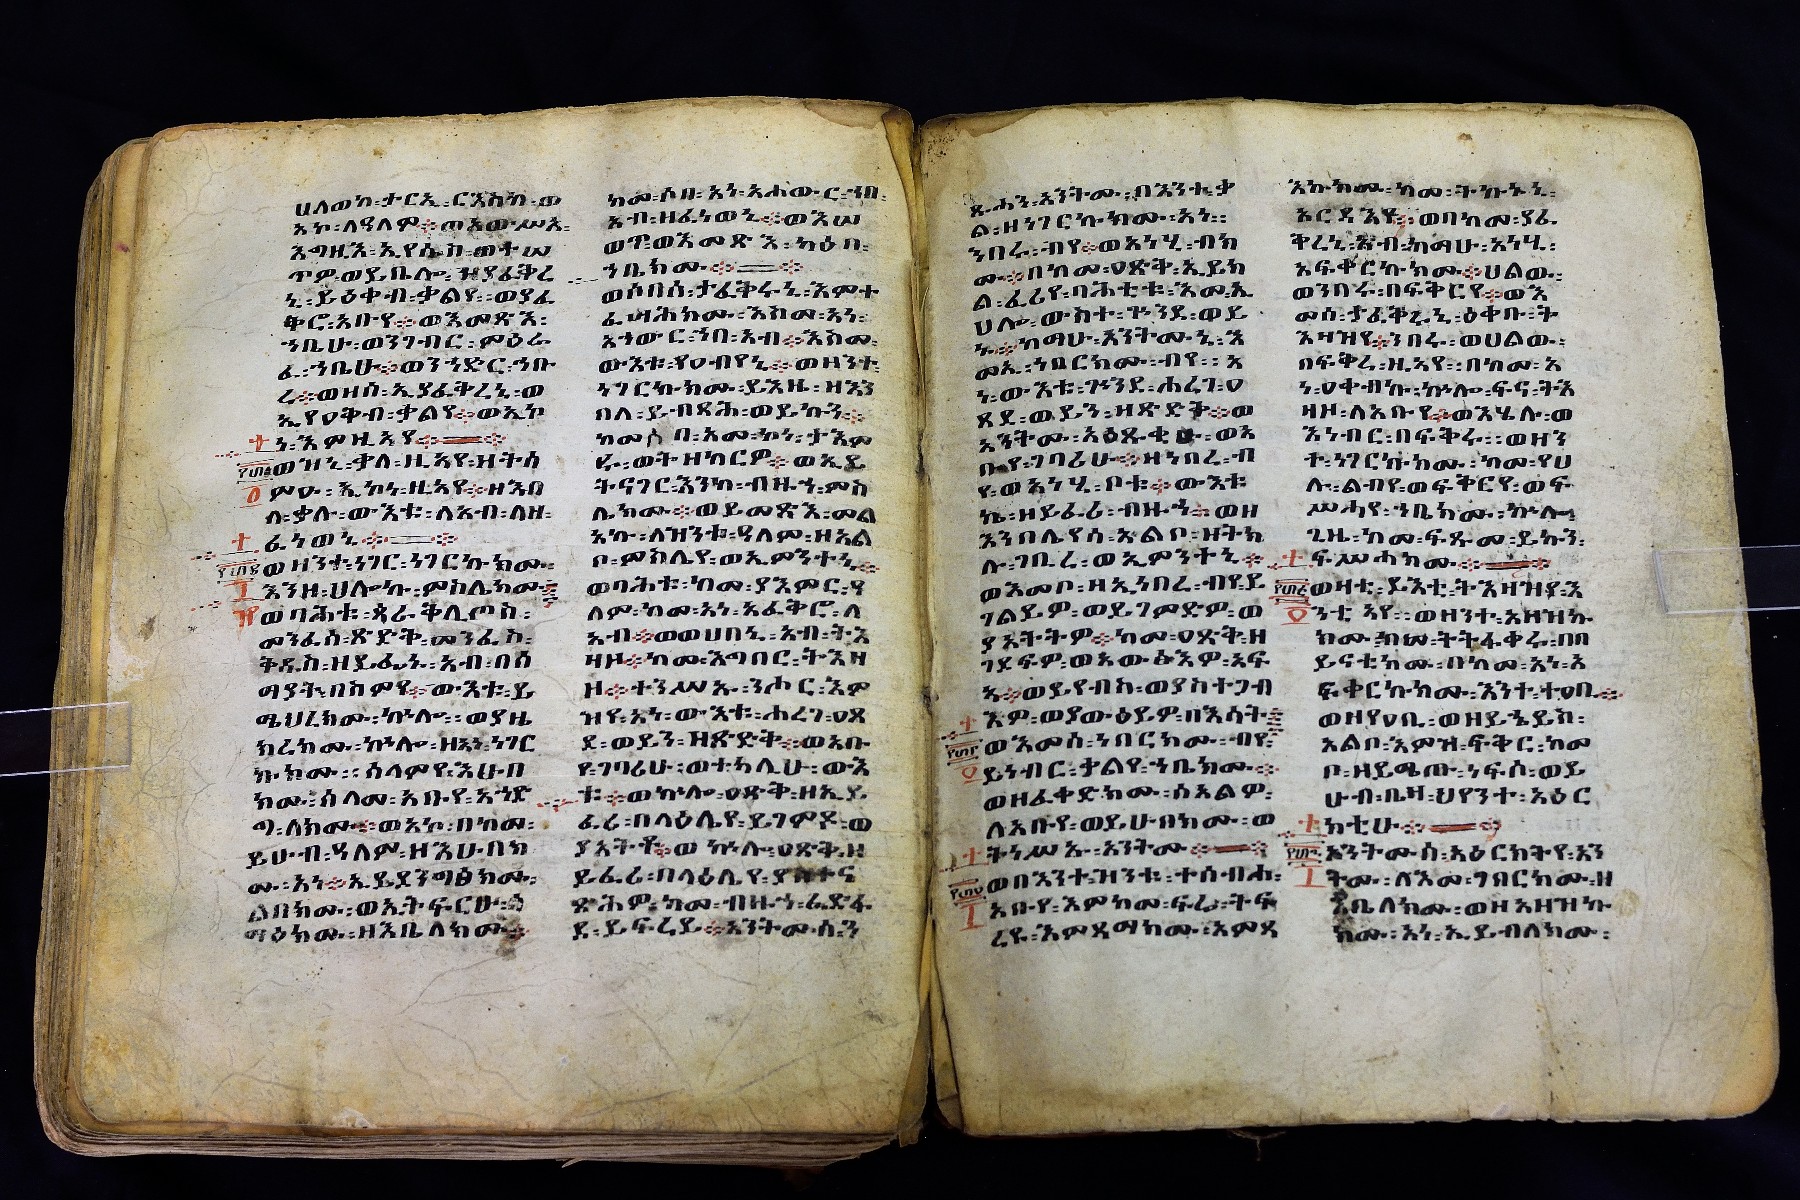 ሀለወከ፡ታርኢ፡ርእስከ፡ወ
አኮ፡ለዓለም፨ወአውሥአ፡
እግዚእ፡ኢየሱስ፡ወትሠ
ጥዎ፡ወይቤሎ፡ዝያፈቅረ
ኒ፡ይዕቀብ፡ቃልየ፡ወያፈ
ቅሮ፡አቡየ፨ወእመጽእ፡
ኀቤሁ፡ወንገብር፡ምዕራ
ፈ፡ኀቤሁ፨ወንኀድር፡ኀቡ
ረ፨ወዘሰ፡ኢያፈቅረኒ፡ወ
ኢየዐቅብ፡ቃልየ፨ወኢኮ
ነ፡እምዚአየ፨
ወዝኒ፡ቃለ፡ዚአየ፡ዘትሰ
ምዑ፡ኢኮነ፡ዚአየ፨ዘእበ
ለ፡ቃሉ፡ውእቱ፡ለአብ፡ለዘ፡
ፈነወኒ፨
ወዘንተ፡ነገር፡ነገርኩክሙ፡
እንዘ፡ሀሎኩ፡ምስሌክሙ፨
ወባሕቱ፡ጳራቅሊጦስ፡
መንፈሰ፡ጽድቅ፡መንፈስ፡
ቅዱስ፡ዘይፌኑ፡አብ፡በሰ
ማያት፡በስምየ፨ውእቱ፡ይ
ሜህረክሙ፡ኵሎ፡ወያዜ
ክረክሙ፡ኵሎ፡ዘአነ፡ነገር
ኩክሙ፡ሰላምየ፡እሁበ
ክሙ፡ሰላመ፡አቡየ፡አኀድ
ግ፡ለክሙ፨ወአኮ፡በከመ፡
ይሁብ፡ዓለም፡ዘእሁብክ
ሙ፡አነ፨ኢይደንግፅክሙ፡
ልብክሙ፡ወኢትፍርሁ፡ሰ
ማዕክሙ፡ዘእቤለክሙ፨
ከመ፡ሶበ፡አነ፡አሐውር፡ኀበ፡
አብ፡ዘፈነወኒ፨ወእሠ
ወጥ፡ወእመጽእ፡ካዕበ፡
ኀቤክሙ፨
ወሶበሰ፡ታፈቅሩኒ፡እምተ
ፈሣሕክሙ፡እስመ፡አነ፡
አኀውር፡ኀበ፡አብ፨እስመ፡
ውእቱ፡የዐብየኒ፨ወዘንተ፡
ነገርኩክሙ፡ይእዜ፡ዘእን
በለ፡ይብጻሕ፡ወይኩን፨
ከመ፡ሶበ፡አመ፡ኮነ፡ታእም
ሩ፡ወትዘከርዎ፨ወኢይ
ትናገር፡እንከ፡ብዙኀ፡ምስ
ሌክሙ፨ወይመጽእ፡መል
አኩ፡ለዝንቱ፡ዓለም፡ዘአል
ቦ፡ምስሌየ፡ወኢምንትኒ፨
ወባሕቱ፡ከመ፡ያእምር፡ዓ
ለም፡ከመ፡አነ፡አፈቅሮ፡ለ
አብ፨ወወሀበኒ፡አብ፡ትእ
ዛዘ፨ከመ፡እግበር፡ትእዛ
ዘ፨ተንሥኡ፡ንሖር፡እም
ዝየ፡አነ፡ውእቱ፡ሐረገ፡ዐጸ
ደ፡ወይን፡ዝጽድቅ፨ወአቡ
የ፡ገባሪሁ፡ወተካሊሁ፡ውእ
ቱ፨ወኵሎ፡ዐጽቅ፡ዘኢይ
ፈሪ፡በላዕሌየ፡ይገምዶ፡ወ
ያአትቶ፨ወኵሉ፡ዐጽቅ፡ዘ
ይፈሪ፡በላዕሌየ፡
ጽሕዎ፡ከመ፡ብዙኀ፡ፍሬ፡ይፈ
ደ፡ይፍረይ፨አንትሙሰ፡ን
ጹሓን፡አንትሙ፡በእንተ፡ቃ
ል፡ዘነገርኩክሙ፡አነ፡
ንበሩ፡ብየ፨ወአነሂ፡ብክ
ሙ፨በከመ፡ዐጽቅ፡ኢይክ
ል፡ፈሪየ፡ባሕቲቱ፡እመ፡ኢ
ሀሎ፡ውስተ፡ጕንደ፡ወይ
ኑ፨ከማሁ፡አንትሙኒ፡እ
መ፡ኢነበርክሙ፡ብየ፡አ
ነ፡ውእቱ፡ጕንደ፡ሐረገ፡ዐ
ጸደ፡ወይን፡ዘጽድቅ፨ወ
አንትሙ፡አዕጹቂሁ፡ወአ
ቡየ፡ገባሪሁ፨ዘነበረ፡ብ
የ፡ወአነሂ፡ቦቱ፨ውእቱ
ኬ፡ዘይፈሪ፡ብዙኀ፨ወዘ
እንበሌየሰ፡አልቦ፡ዝትክ
ሉ፡ገቢረ፡ወኢምንትኒ፨
ወእመቦ፡ዘኢነበረ፡ብየ፡ይ
ገልይዎ፡ወይገምድዎ፡ወ
ያአትትዎ፨ከመ፡ዐጽቅ፡ዘ
ገደፍዎ፡ወአውፅእዎ፡አፍ
ኣ፨ወይየብስ፡ወያስተጋብ
እዎ፡ወያውዕይዎ፡በእሳት፨
ወእመሰ፡ነበርክሙ፡ብየ፡
ይነብር፡ቃልየ፡ኀቤክሙ፨
ወዘፈቀድክሙ፡ሰአልዎ፡
ለአቡየ፡ወይሁበክሙ፡ወ
ትነሥኡ፡አንትሙ፨
ወበእንተ፡ዝንቱ፡ተሰብሐ፡
አቡየ፡እምከመ፡ፍሬ፡ትፍ
ረዩ፡እምዳማክሙ፡እምዳ
እኩክሙ፡ከመ፡ትኩኑኒ፡
አርዳእየ፨ወበከመ፡ያፈ
ቅረኒ፡አብ፡ከማሁ፡አነሂ፡
አፍቀርኩክሙ፨ሀልው፡
ወንበሩ፡በፍቅርየ፨ወእ
መሰ፡ታፈቅሩኒ፡ዕቀቡ፡ት
እዛዝየ፨ንበሩ፡ወሀልው፡
በፍቅረ፡ዚአየ፡በከመ፡አ
ነ፡ዐቀብኩ፡ኵሎ፡ፍኖ፡ትእ
ዛዙ፡ለአቡየ፨ወእሄሉ፡ወ
እነብር፡በፍቅሩ፡ወዘን
ተ፡ነገርኩክሙ፡ከመ፡የሀ
ሉ፡ልብየ፡ወፍቅርየ፡ወፍ
ሥሓየ፡ኀቤክሙ፡ኵሎ፡
ጊዜ፡ከመ፡ፍጹመ፡ይኩን፡
ፍሥሐክሙ፨
ወዛቲ፡ይእቲ፡ትእዛዝየ፡እ
ንቲአየ፡ወዘንተ፡አዝዝኩ
ክሙ፡ከመ፡ትትፋቀሩ፡በበ
ይናቲክሙ፡በከመ፡አነ፡አ
ፍቀርኩክሙ፡እንተ፡ተዐቢ፨
ወዘየዐቢ፡ወዘይኄይስ፡
አልቦ፡እምዝ፡ፍቅር፡ከመ
ቦ፡ዘይሜጡ፡ነፍሰ፡ወይ
ሁብ፡ቤዛ፡ህየንተ፡አዕር
ክቲሁ፨
አንትሙሰ፡አዕርክትየ፡አን
ትሙ፡ለእመ፡ገበርክሙ፡ዘ
እቤለክሙ፡ወዘአዘዝኩ
ክሙ፡አነ፡ኢይብለክሙ፡